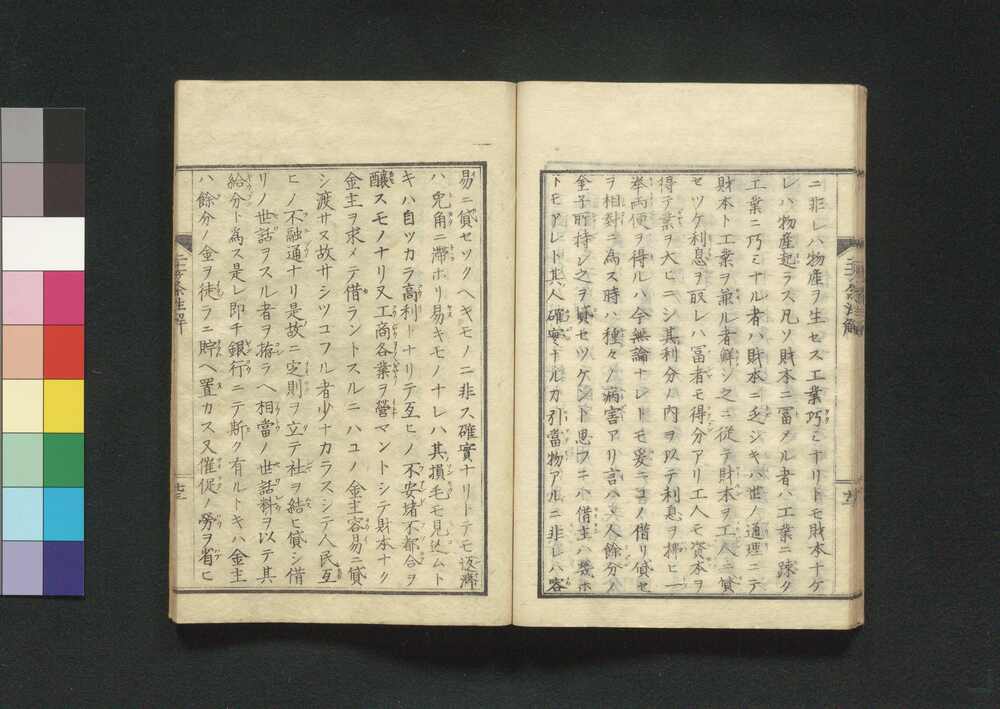 ニ非レハ物産ヲ生セス工業巧ミナリトモ財本ナケ
レハ物産起ラス凡ソ財本ニ冨メル者ハ工業ニ疎ク
工業ニ巧ミナル者ハ財本ニ乏シキハ世ノ通理ニテ
財本ト工業ヲ兼ル者鮮シ之ニ従テ財本ヲ工人ニ貸
セツケ利息ヲ取レハ冨者モ得分アリ工人モ資本ヲ
得テ業ヲ大ヒニシ其利分ノ内ヲ以テ利息ヲ拂ヒ一
挙両便ヲ得ルハ今無論ナレトモ爰ニコノ借リ貸セ
ヲ相對ニ為ス時ハ種々ノ病害アリ言ハヽ人餘分ノ
金子所持シ之ヲ貸セツケント思フニハ借主ハ幾ホ
トモアレト其人確実ナルカ引當物アルニ非レハ容
易ニ貸セツクヘキモノニ非ス確實ナリトテモ返濟
ハ兎角ニ滞ホリ易キモノナレハ其損毛モ見込ムト
キハ自ツカラ高利トナリテ互ヒノ不安堵不都合ヲ
醸スモノナリ又工商各業ヲ營マントシテ財本ナク
金主ヲ求メテ借ラントスルニハコノ金主容易ニ貸
シ渡サス故サシツコフル者少ナカラスシテ人民互
ヒノ不融通ナリ是故ニ定則ヲ立テ社ヲ結ヒ貸シ借
リノ世話ヲスル者ヲ拵ラヘ相當ノ世話料ヲ以テ其
給分ト為ス是レ即チ銀行ニテ斯ク有ルトキハ金主
ハ餘分ノ金ヲ徒ラニ貯ヘ置カス又催促ノ勞ヲ省ヒ